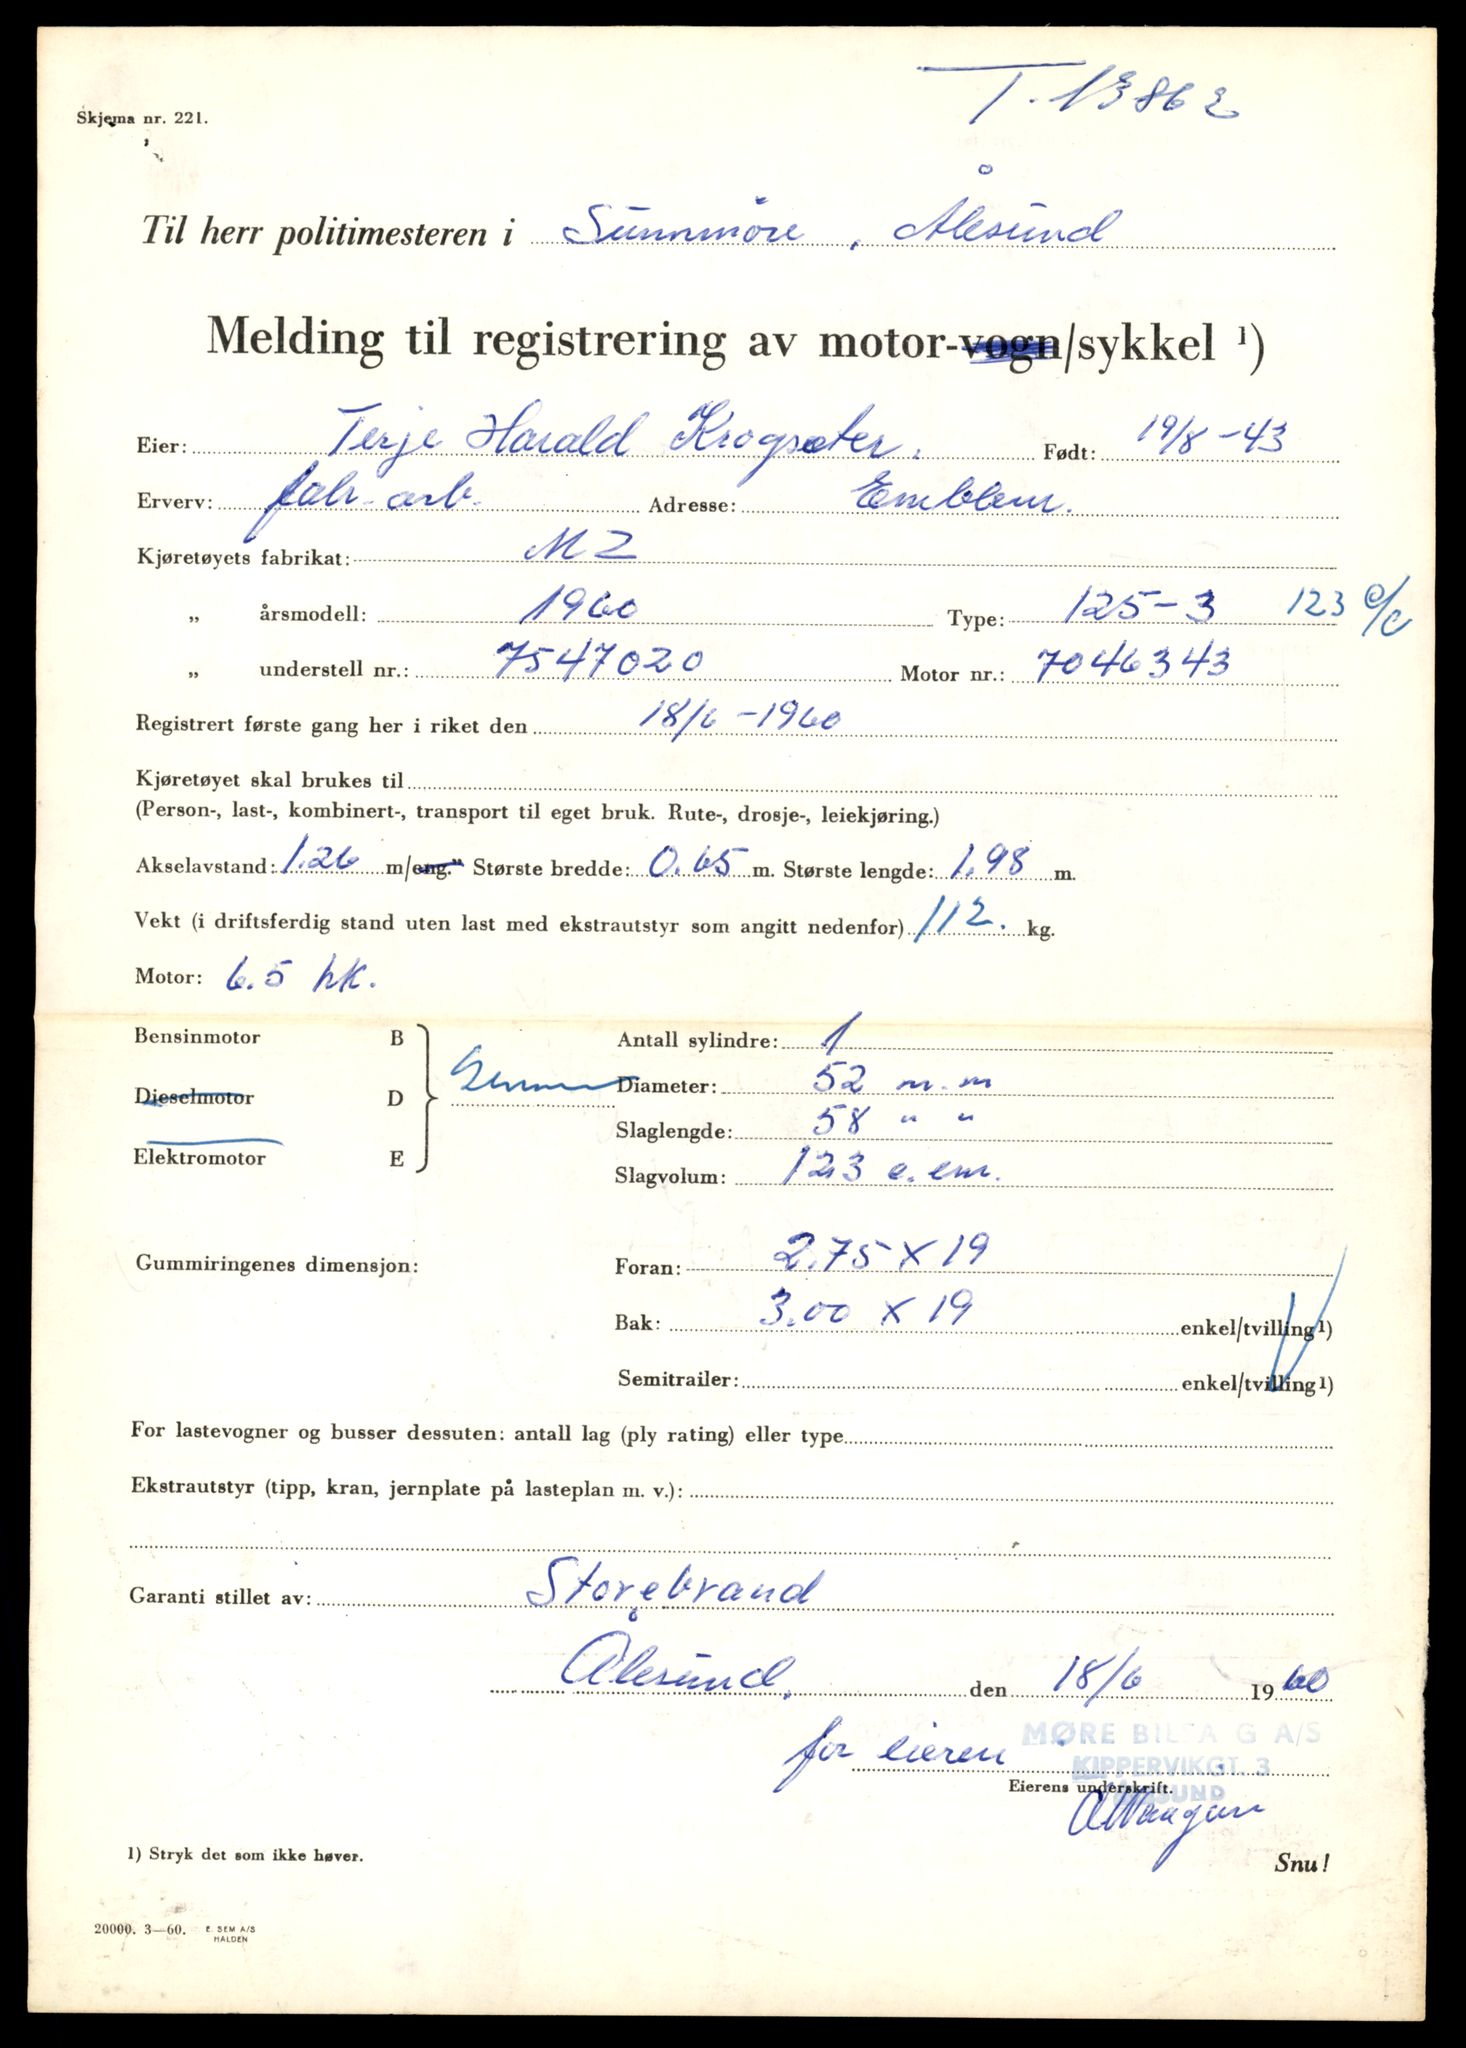 T. 13862
Skjema nr. 221.
Til herr politimesteren i Sunnmöre, Ålesund
Melding til registrering av motor-vogn/sykkel ¹)
Eier: Terje Harald Krogseter. Født: 19/8-43
Erverv: fabr-arb. Adresse: Emblem.
Kjøretøyets fabrikat: MZ
„ årsmodell: 1960 Type: 125-3 123 c/c
„ understell nr.: 7547020 Motor nr.: 7046343
Registrert første gang her i riket den 18/6-1960
Kjøretøyet skal brukes til
(Person-, last-, kombinert-, transport til eget bruk. Rute-, drosje-, leiekjøring.)
Akselavstand: 1.26 m/eng." Største bredde: 0.65 m. Største lengde: 1.98 m.
Vekt (i driftsferdig stand uten last med ekstrautstyr som angitt nedenfor) 112. kg.
Motor: 6.5 hk.
Bensinmotor B Antall sylindre: 1
Dieselmotor D Diameter: 52 m.m
Slaglengde: 58 " "
Elektromotor E Slagvolum: 123 c.cm.
Gummiringenes dimensjon: Foran: 2.75 x 19
Bak: 3.00 x 19 enkel/tvilling¹)
Semitrailer: enkel/tvilling¹)
For lastevogner og busser dessuten: antall lag (ply rating) eller type
Ekstrautstyr (tipp, kran, jernplate på lasteplan m. v.):
Garanti stillet av: Storebrand
Ålesund, den 18/6 1960
for eieren MØRE BILSA G A/S
KIPPERVIKGT. 3
Eierens underskrift. ÅLESUND
1) Stryk det som ikke høver.
Snu!
20000. 3—60. E. SEM A/S
HALDEN